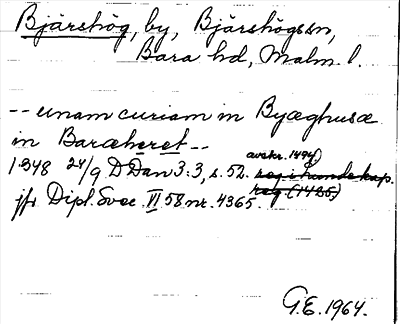 Bjärshög, by, Bjärshögs sn,
Bara hd, Malm. l.
-- unam curiam in Byæghusæ
in Baræheret --
avskr. 1494)
1348 24/9 D Dan 3:3, s. 52.
jfr Dipl. Svec. VI 58 nr. 4365. reg. (1485)
G.E. 1964.